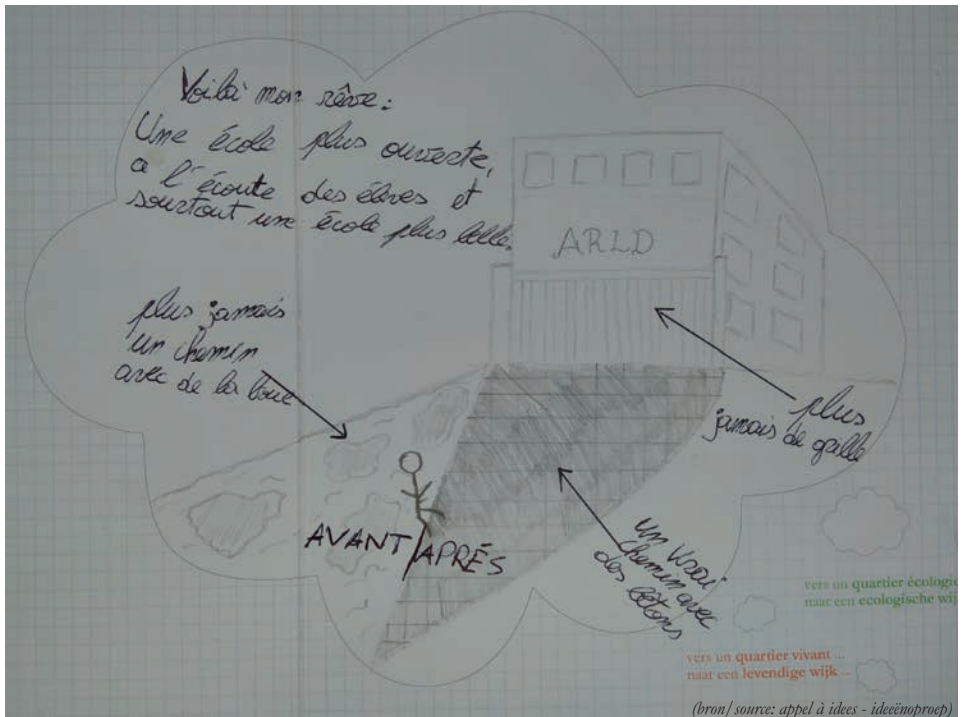 Voilà mon rêve:
Une école plus ouverte,
a l'écoute des élèves et
sourtout une école plus belle.
ARLD
plus jamais
un chemin
avec de la boue
plus
jamais de grille
AVANT/APRÉS
un vrai
chemin avec
des bétons
vers un quartier écologi
naar een ecologische wij
vers un quartier vivant ...
naar een levendige wijk ...
(bron/source: appel à idees - ideeënoproep)